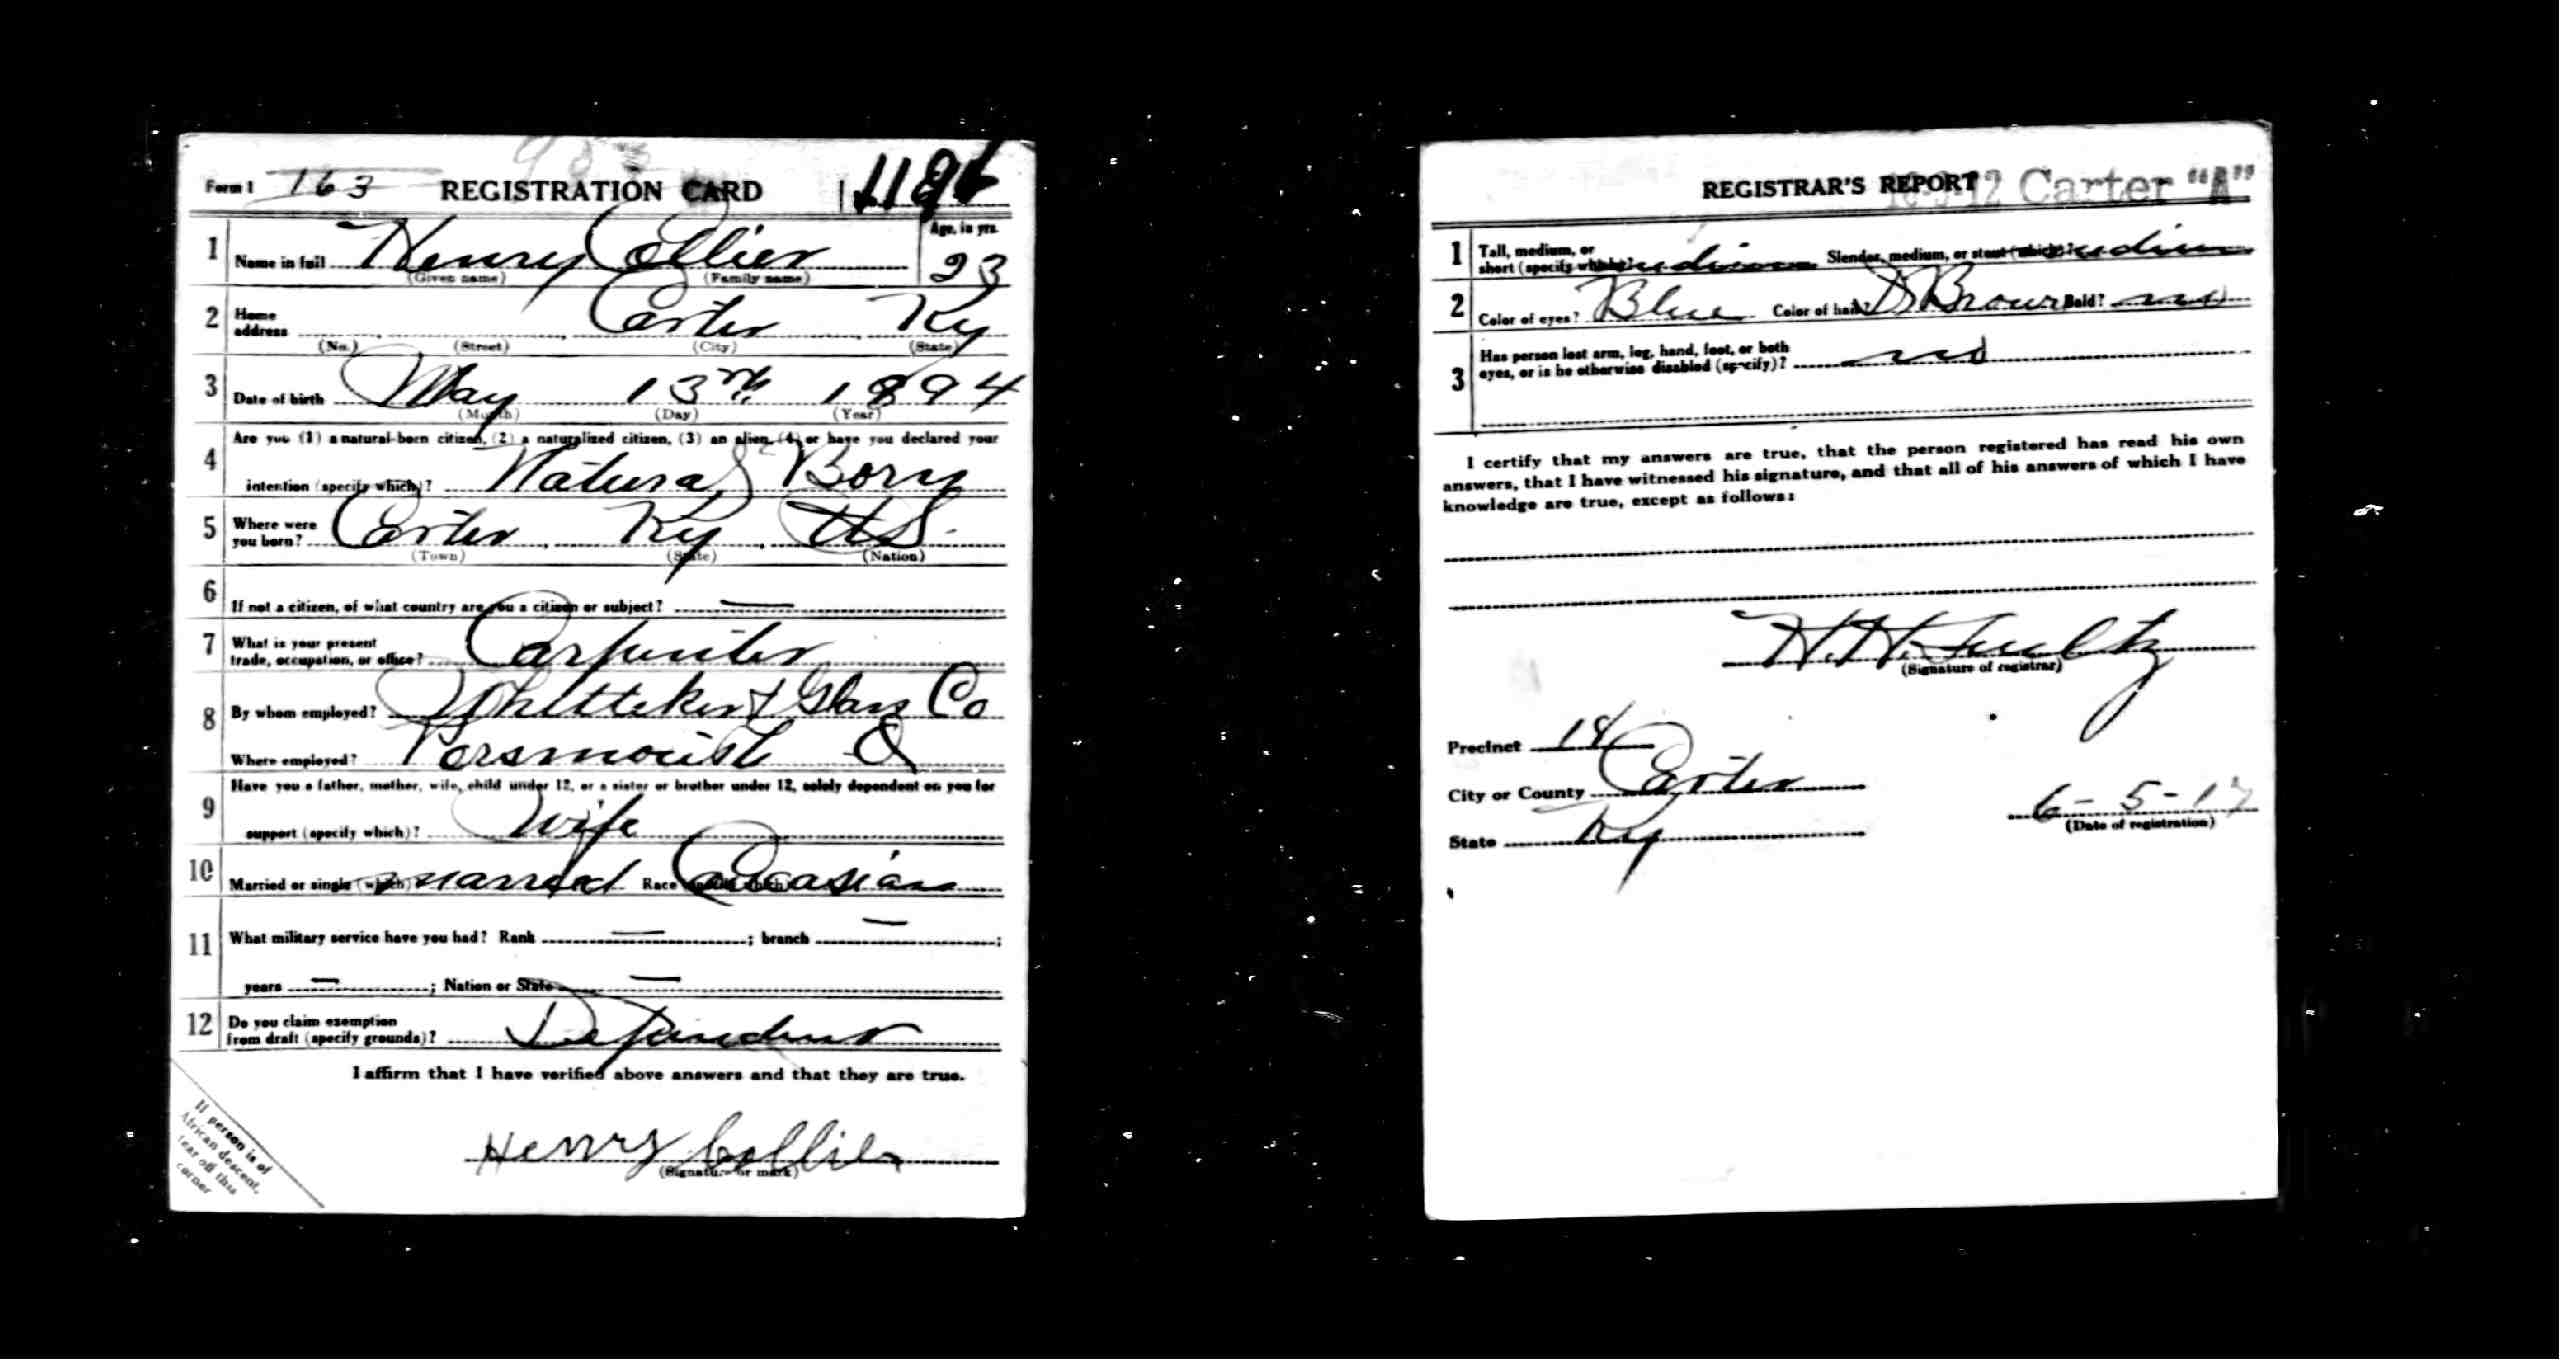 Form 1 163 REGISTRATION CARD
1 Name in full Henry Collier Age, in yrs. 23
(Given name) (Family name)
2 Home address Carter Ky
(No.) (Street) (City) (State)
3 Date of birth May 13th 1894
(Month) (Day) (Year)
4 Are you (1) a natural-born citizen, (2) a naturalized citizen, (3) an alien, (4) or have you declared your
intention (specify which)? Natural Born
5 Where were you born? Carter Ky US.
(Town) (State) (Nation)
6 If not a citizen, of what country are you a citizen or subject? —
7 What is your present trade, occupation, or office? Carpenter
8 By whom employed? Whitteker & Glass Co
Where employed? Porsmouth O
9 Have you a father, mother, wife, child under 12, or a sister or brother under 12, solely dependent on you for
support (specify which)? Wife
10 Married or single (which)? married Race (specify which)? Caucasian
11 What military service have you had? Rank — ; branch — ;
years — ; Nation or State —
12 Do you claim exemption from draft (specify grounds)?
I affirm that I have verified above answers and that they are true.
Henry Collier
(Signature or mark)
If person is of
African descent,
tear off this
corner
REGISTRAR'S REPORT Carter "A"
1 Tall, medium, or short (specify which)? medium Slender, medium, or stout (which)? medium
2 Color of eyes? Blue Color of hair? D Brown Bald? no
3 Has person lost arm, leg, hand, foot, or both
eyes, or is he otherwise disabled (specify)? no
I certify that my answers are true, that the person registered has read his own
answers, that I have witnessed his signature, and that all of his answers of which I have
knowledge are true, except as follows:
H. H. Fultz
(Signature of registrar)
Precinct 14
City or County Carter
State Ky
6-5-17
(Date of registration)